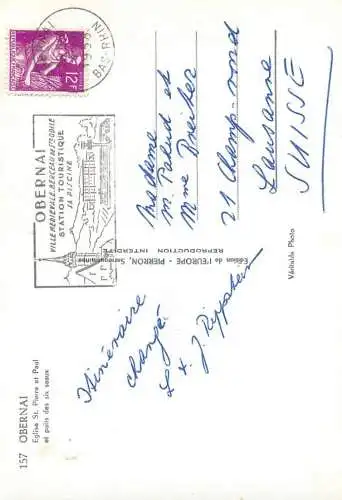 157 OBERNAI
Eglise St. Pierre et Paul
et puits des six seaux
Itinéraire
changé
J. Rippstein
OBERNAI
VILLE MEDIEVALE. BERCEAU de STE ODILE
STATION TOURISTIQUE
SA PISCINE
BAS-RHIN
12F
Edition de l'EUROPE - PIERRON, Sarreguemines
REPRODUCTION INTERDITE
Véritable Photo
Madame
M. Palud et
Mme Dreiber
21 Champ-rond
Lausanne
SUISSE